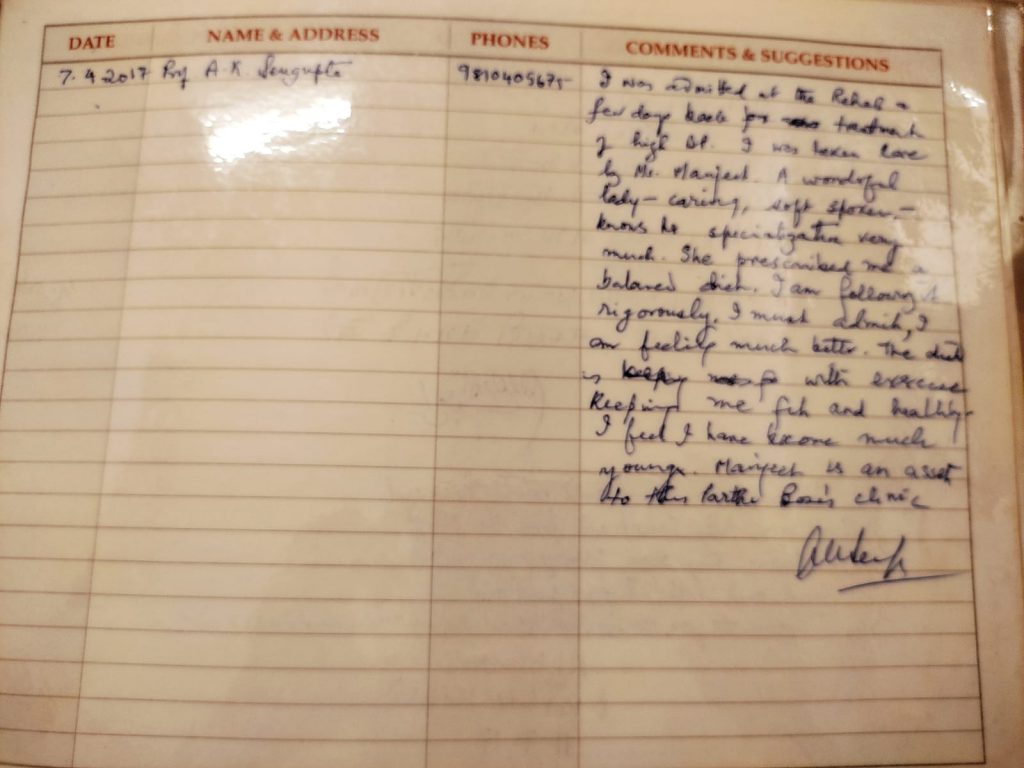 DATE NAME & ADDRESS PHONES COMMENTS & SUGGESTIONS
7.4.2017 Prof A.K. Sengupta 9810405675 I was admitted at the Rehab a
few days back for treatment
of high BP. I was taken care
by Ms. Manjeet. A wonderful
lady - caring, soft spoken, -
knows her specialization very
much. She prescribed me a
balanced diet. I am following it
rigorously. I must admit, I
am feeling much better. The diet
is with exercise
keeping me fit and healthy.
I feel I have become much
younger. Manjeet is an asset
to this Partha Bose's clinic